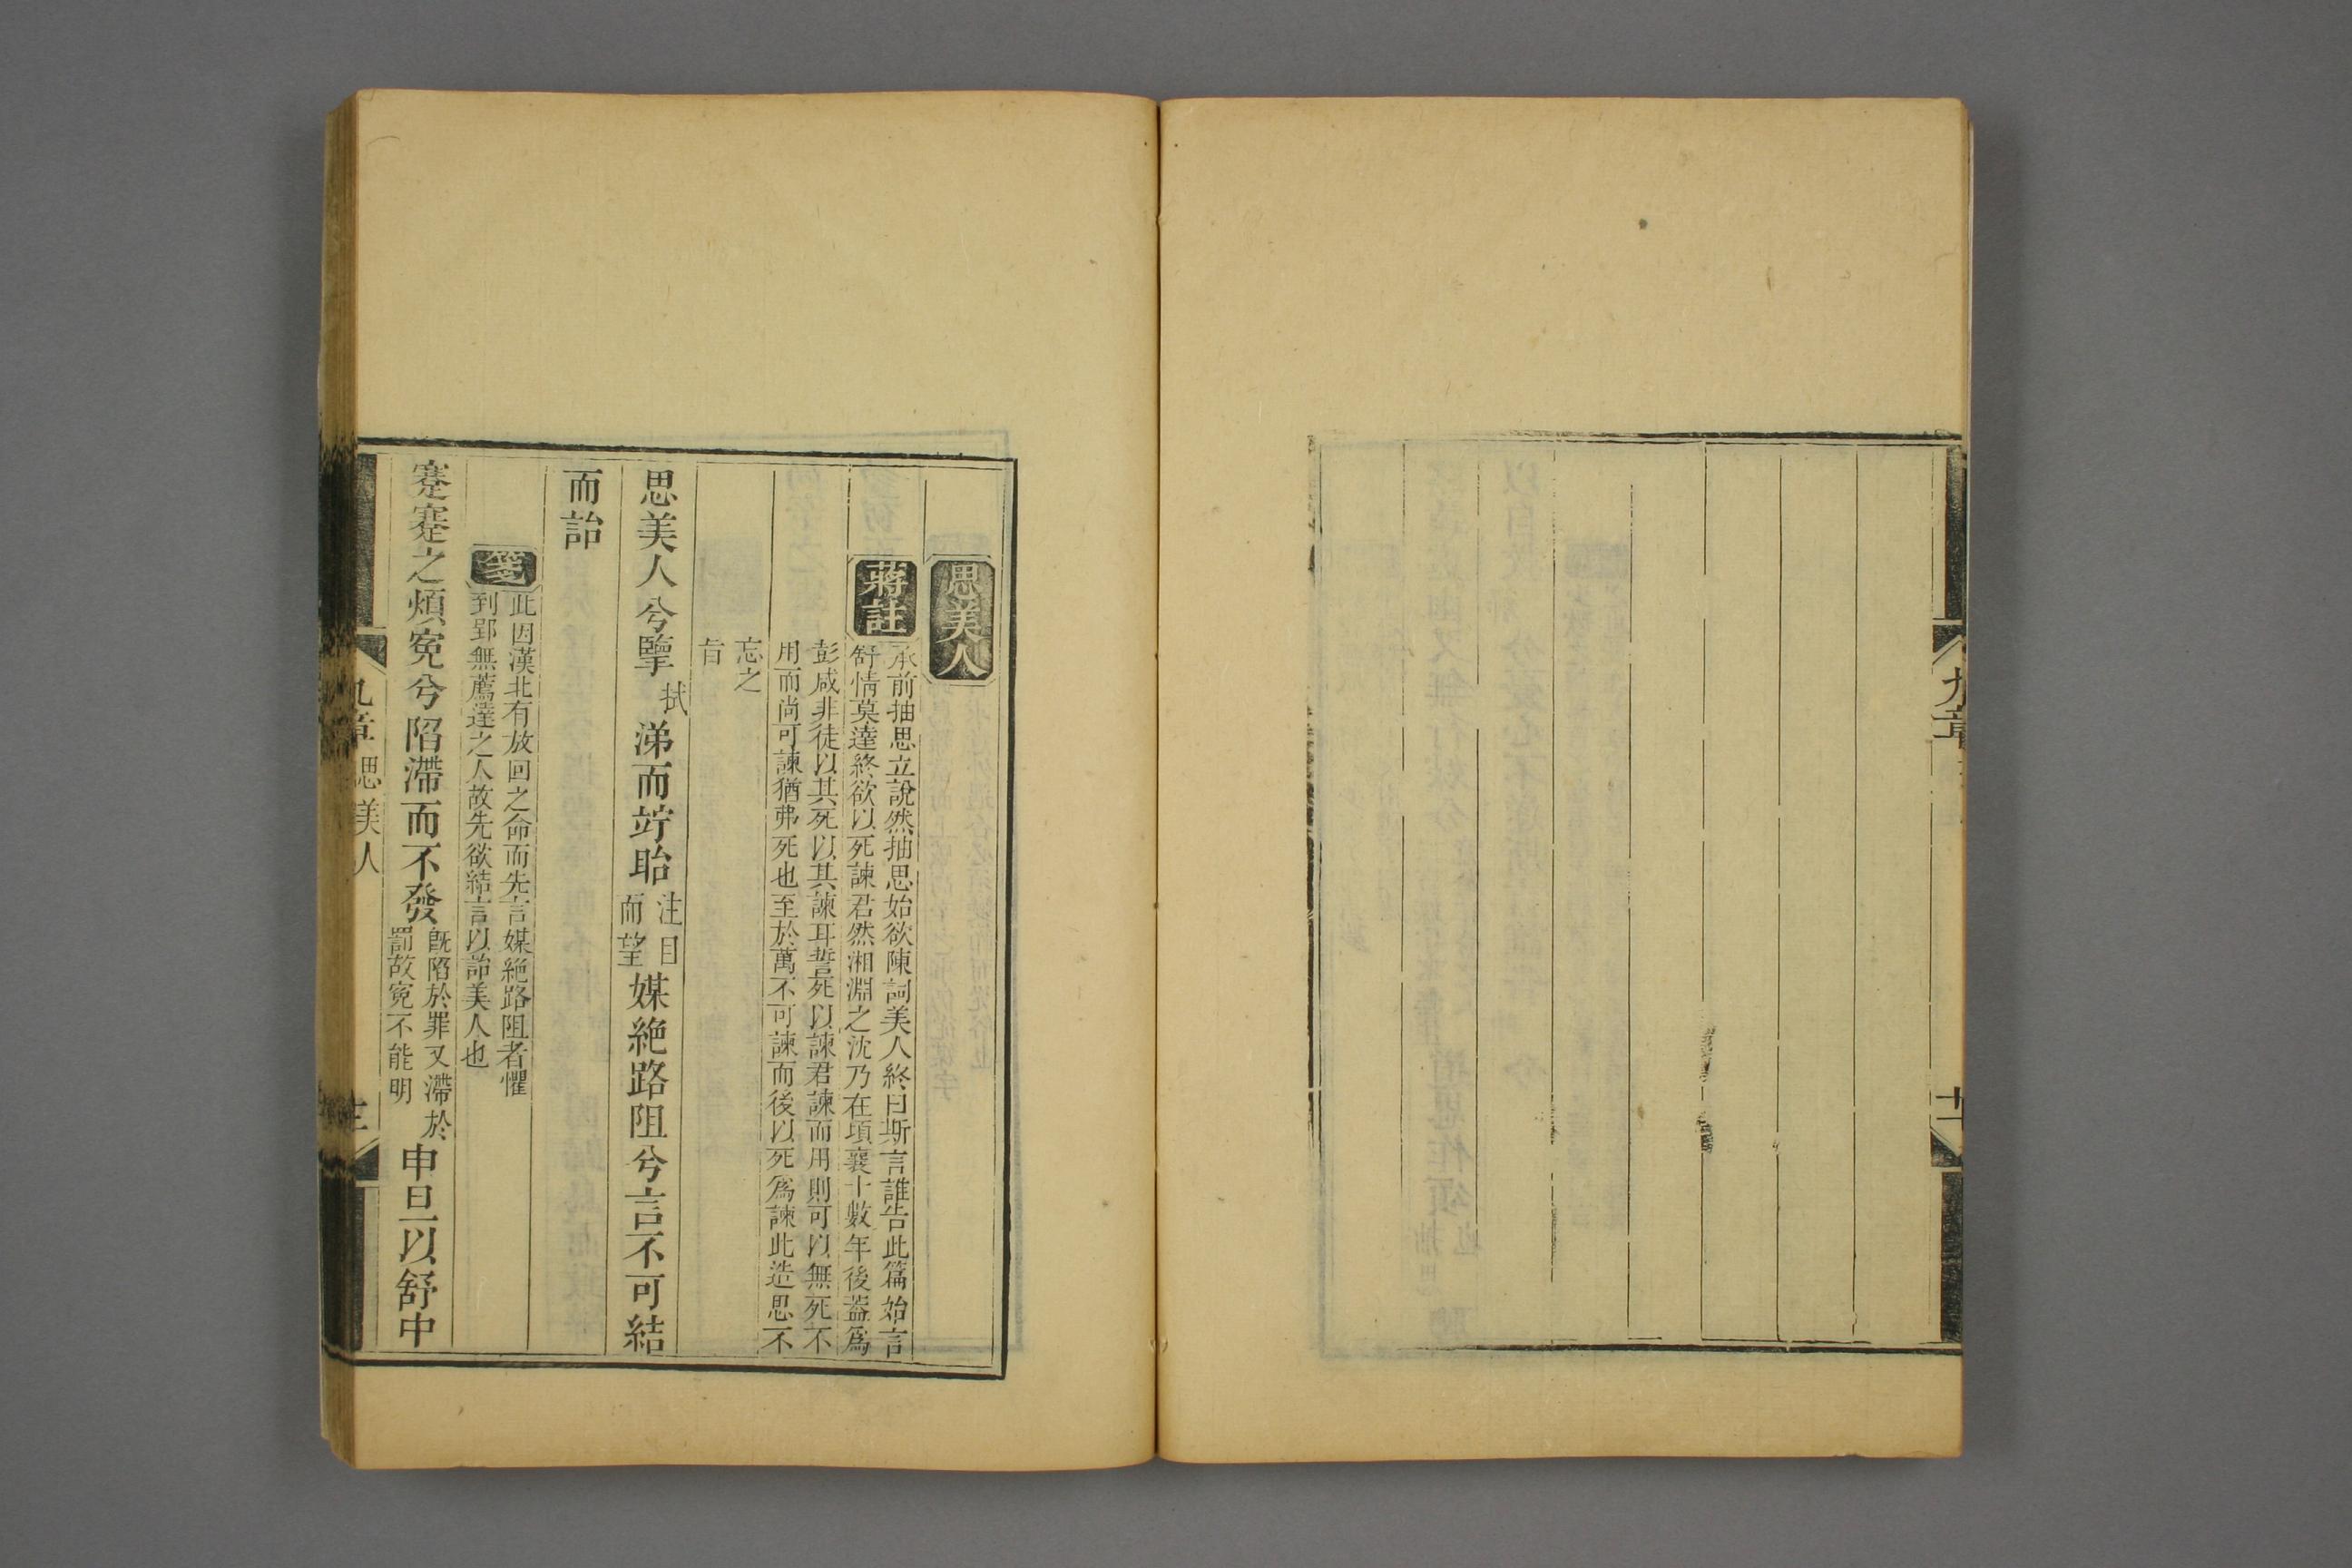 九章
廿
思美人
蔣註
承前抽思立說然抽思始欲陳詞美人終曰斯言誰告此篇始言
舒情莫達終欲以死諫君然湘淵之沈乃在頃襄十數年後蓋爲
彭咸非徒以其死以其諫耳誓死以諫君諫而用則可以無死不
用而尚可諫猶弗死也至於萬不可諫而後以死爲諫此造思不
忘之
旨
思美人兮擥拭涕而竚眙注目而望媒絶路阻兮言不可結
而詒
箋
此因漢北有放回之命而先言媒絶路阻者懼
到郢無薦達之人故先欲結言以詒美人也
蹇蹇之煩寃兮陷滯而不發旣陷於罪又滯於罰故寃不能明申旦以舒中
九章 思美人